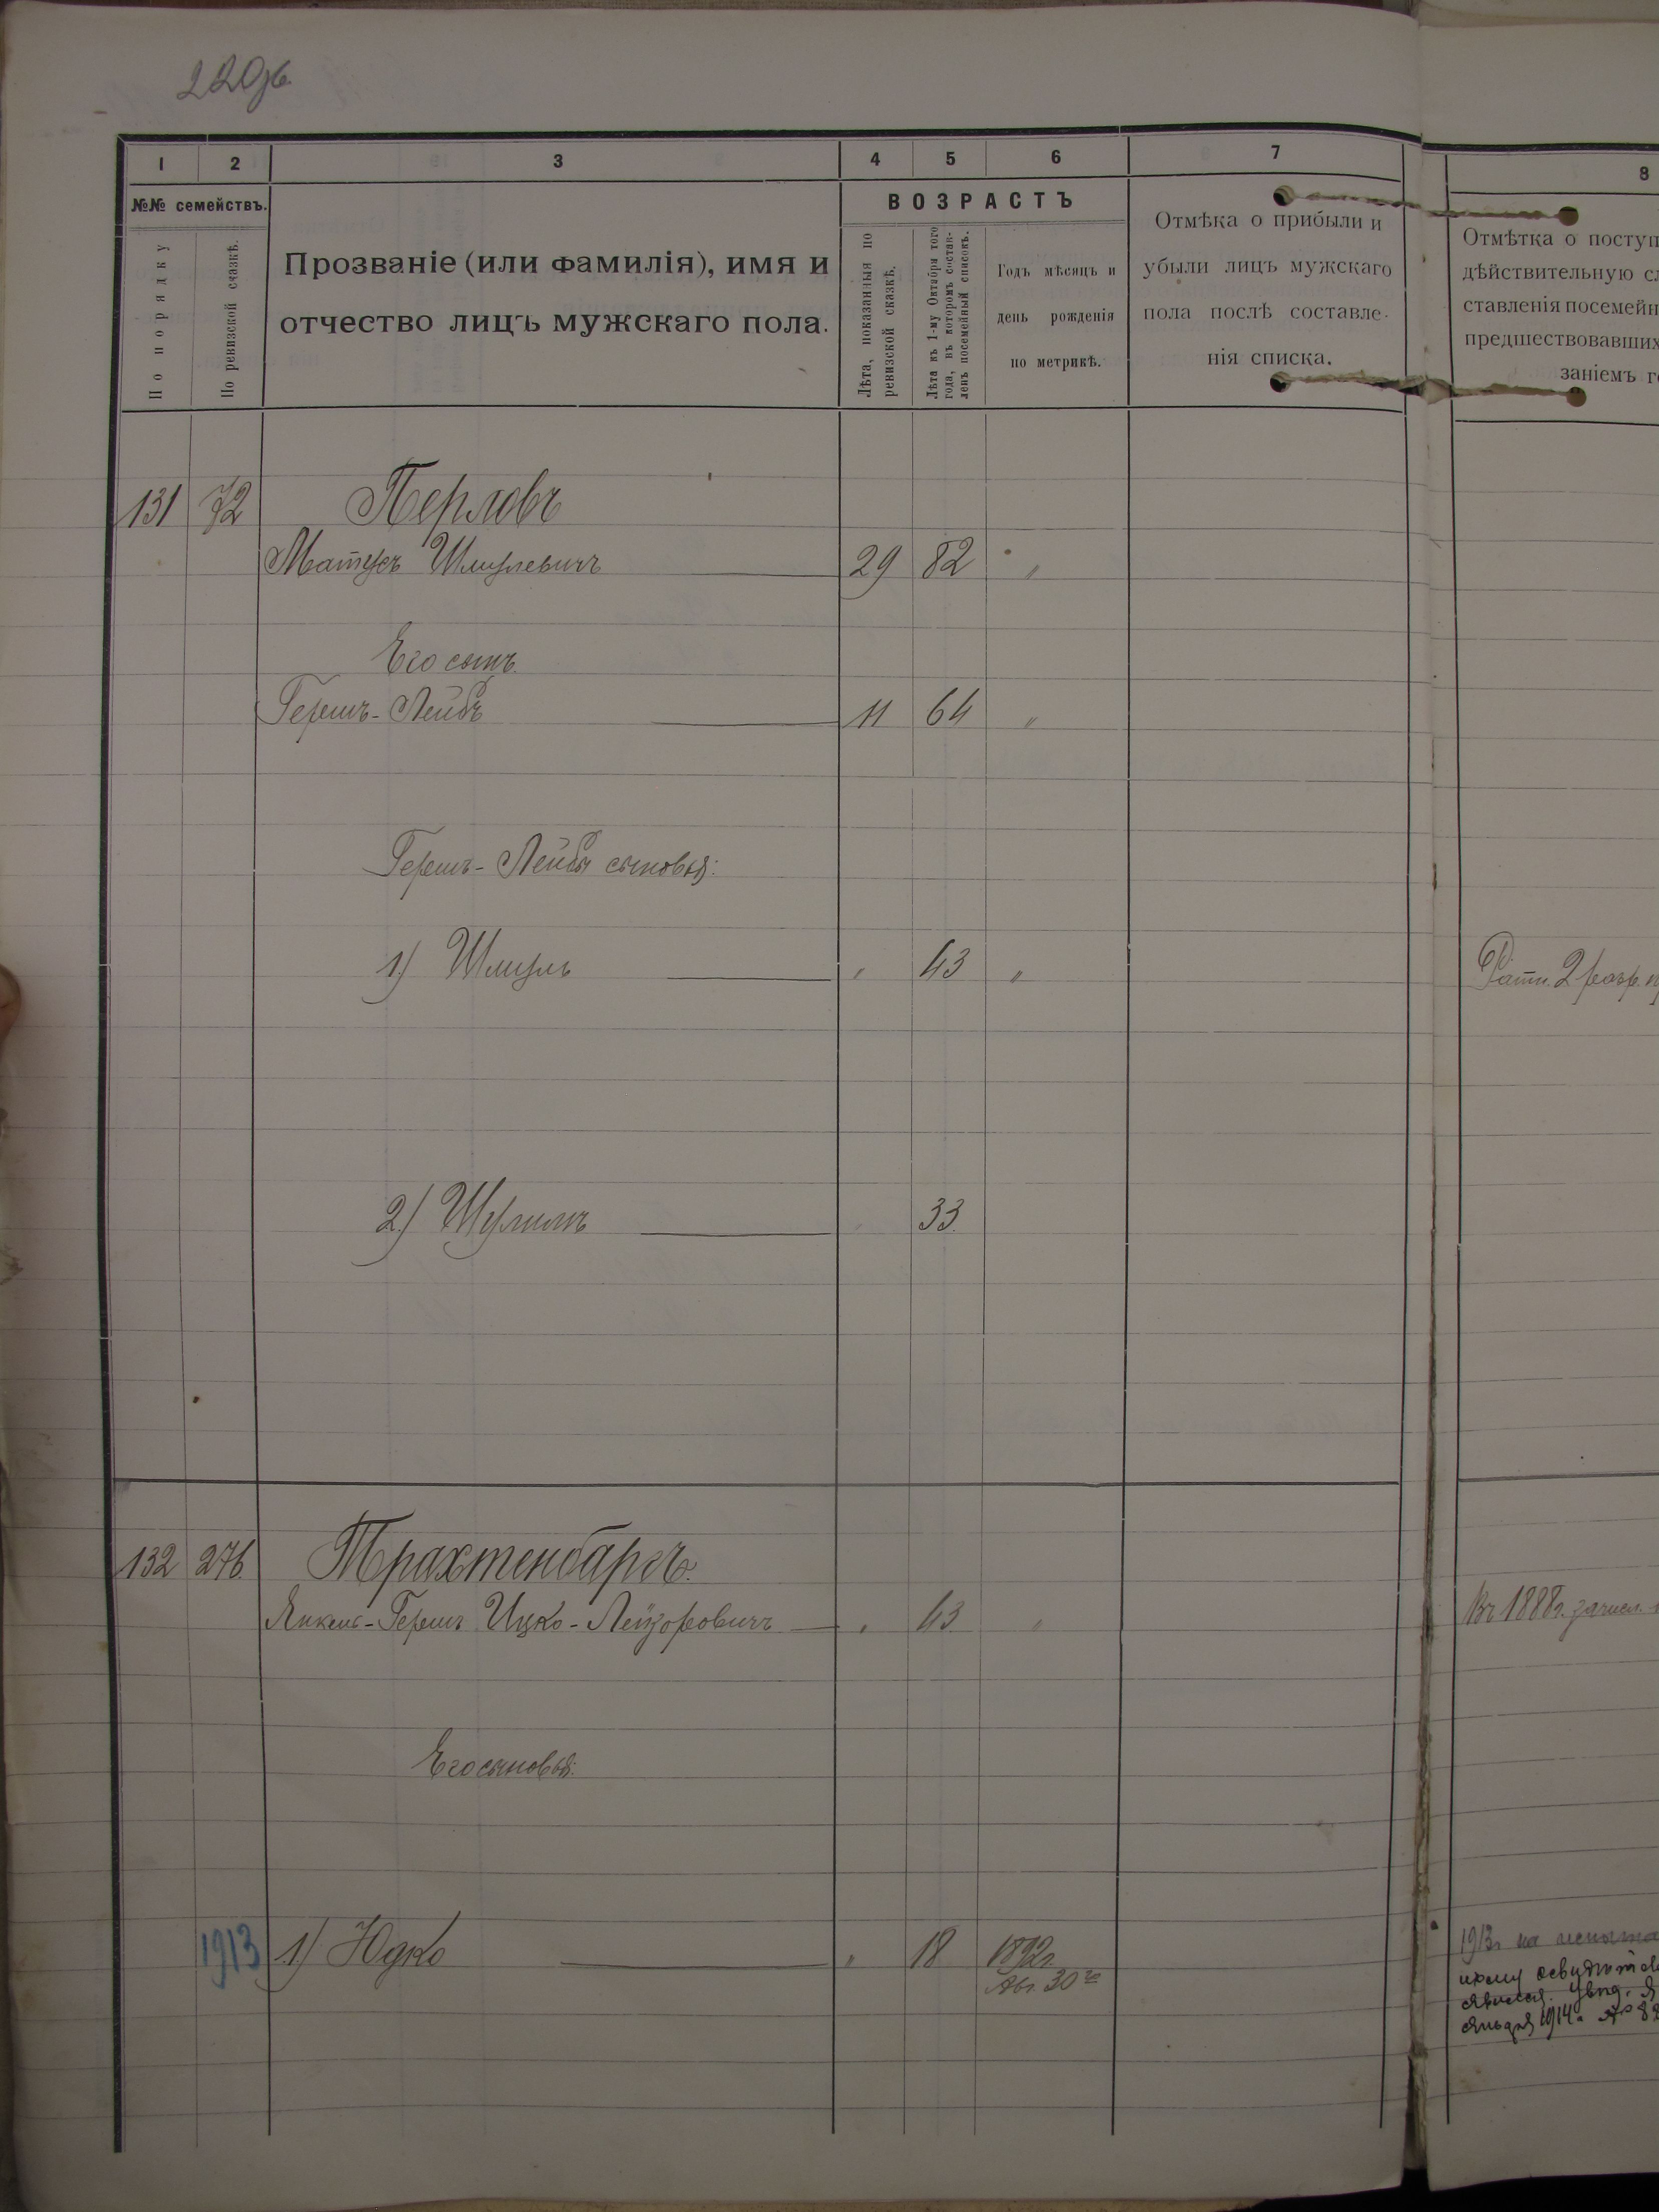 220об.
1 2 3 4 5 6 7 8
№№ семействъ.
По порядку
По ревизской сказкѣ.
Прозваніе (или фамилія), имя и
отчество лицъ мужскаго пола.
ВОЗРАСТЪ
Лѣта, показанныя по
ревизской сказкѣ.
Лѣта къ 1-му Октября того
года, въ которомъ состав-
ленъ посемейный списокъ.
Годъ мѣсяцъ и
день рожденія
по метрикѣ.
Отмѣка о прибыли и
убыли лицъ мужскаго
пола послѣ составле-
нія списка.
Отмѣтка о поступ
дѣйствительную сл
ставленія посемейн
предшествовавших
заніемъ го
131 72 Перловъ
Матусъ Шмулевичъ 29 82 "
Его сынъ
Гершъ-Лейбъ 11 64 "
Гершъ-Лейбы сыновья:
1) Шмуль " 43 "
Ратн. 2 разр.
2) Шулимъ 33.
132 276. Трахтенбаргъ.
Янкель-Гершъ Ицко-Лейзоровичъ " 43 "
Въ 1888г. зачисл.
Его сыновья:
1913 1) Юдко " 18 1892г.
Авг. 30го
1913г на
января 1914г. №